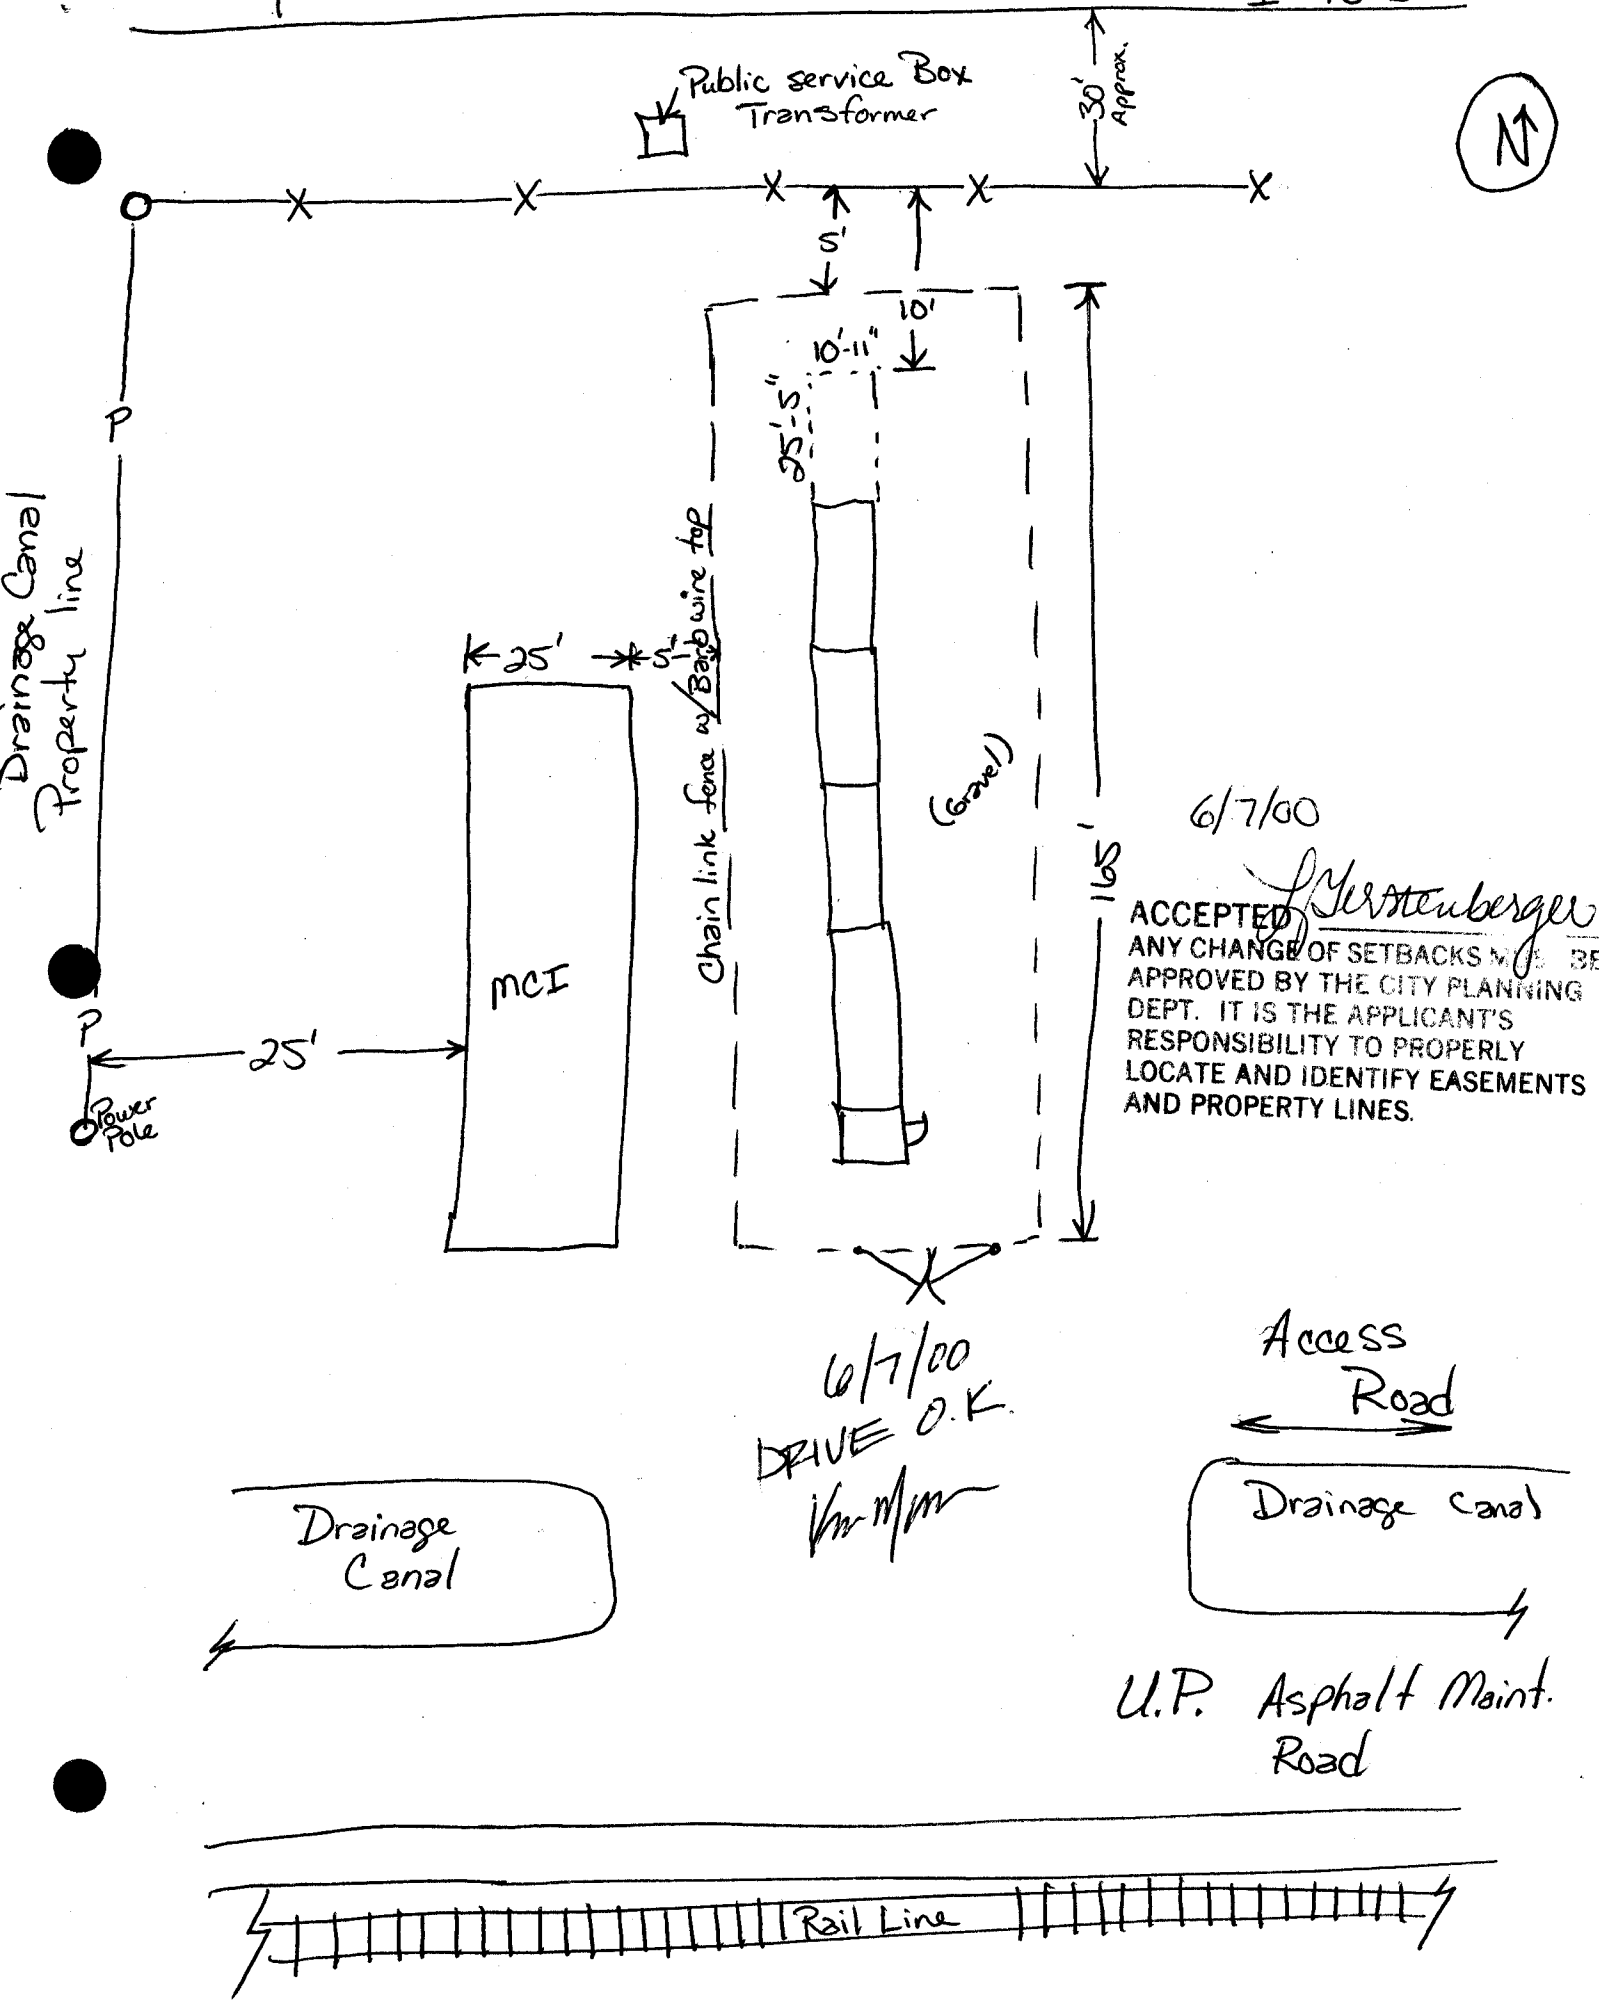 Public service Box
Transformer
30'
Approx.
N
X X X X X
5'
10'
10'-11"
25'-5"
P
Drainage Canal
Property line
25'
5'
Chain link fence w/ Barbwire top
(Gravel)
165'
6/7/00
MCI
ACCEPTED
ANY CHANGE OF SETBACKS MUS BE
APPROVED BY THE CITY PLANNING
DEPT. IT IS THE APPLICANT'S
RESPONSIBILITY TO PROPERLY
LOCATE AND IDENTIFY EASEMENTS
AND PROPERTY LINES.
P
25'
Power
Pole
6/7/00
DRIVE O.K.
Access
Road
Drainage
Canal
Drainage Canal
U.P. Asphalt Maint.
Road
Rail Line